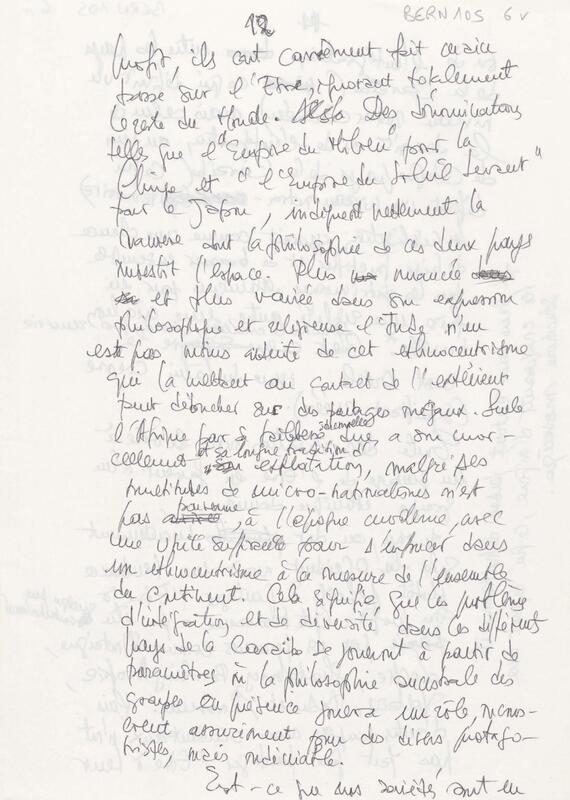 12
BERN 105 6v
profit, ils ont carrément fait main
basse sur l'Etre, ignorant totalement
le reste du Monde. Des dénominations
telles que l'"Empire du Milieu" pour la
Chine et "l'Empire du Soleil Levant"
pour le Japon, indiquent nettement la
manière dont la philosophie de ces deux pays
investit l'espace. Plus nuancée
et plus variée dans son expression
philosophique et religieuse l'Inde n'en
est pas moins de cet ethnocentrisme
que la mettant au contact de l'extérieur
peut déboucher sur des partages majeurs. Seule
l'Afrique par sa faiblesse due, a son mor-
cellement et sa longue tradition d'
exploitation, malgré ses
multitudes de micro-nationalismes n'est
pas parvenue, à l'époque moderne, avec
une unité suffisante pour s'enfoncer dans
un ethnocentrisme à la mesure de l'ensemble
du Continent. Cela signifie que les problèmes
d'intégration, et de diversité, dans les différents
pays de la Caraïbe se joueront à partir de
paramètres où la philosophie ancestrale des
groupes en présence jouera un rôle, incons-
cient assurément pour des divers protago-
nistes, mais indéniable.
Est-ce que nos sociétés sont en